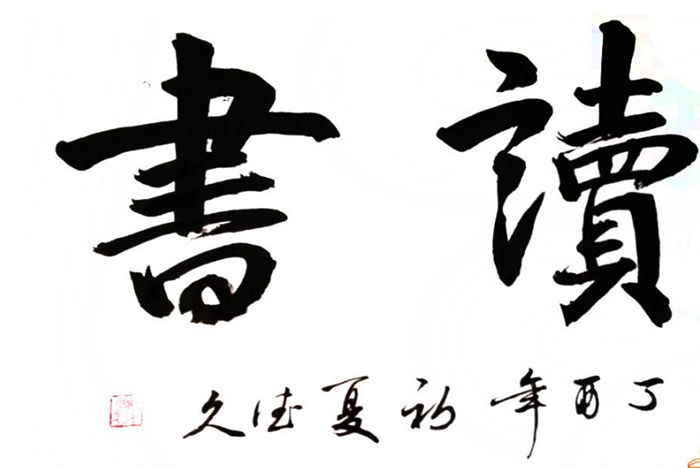 讀書
丁酉年初夏德久